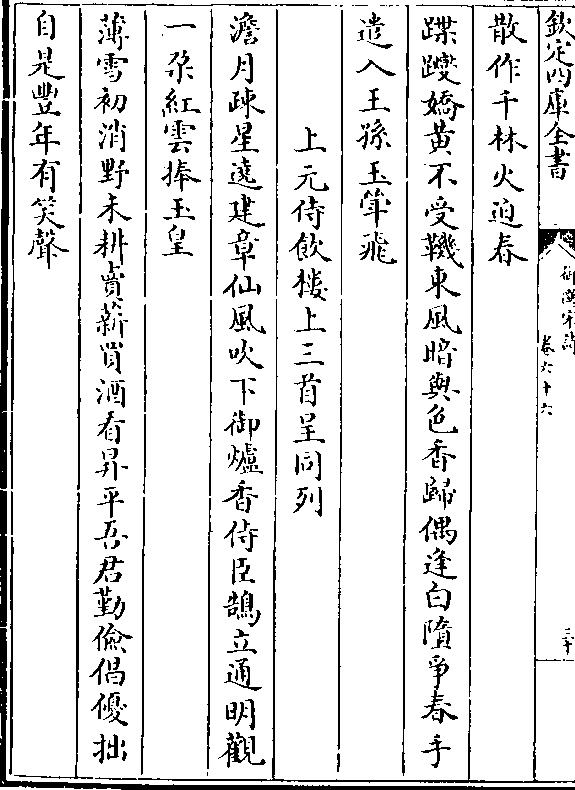 欽定四庫全書
御選宋詩
卷六十六
三十
散作千林火迫春
蹀躞嬌黄不受鞿東風暗與色香歸偶逢白隋爭春手
遣入王孫玉斝飛
上元侍飲樓上三首呈同列
澹月疎星遶建章仙風吹下御爐香侍臣鵠立通明觀
一朶紅雲捧玉皇
薄雪初消野未耕賣薪買酒看昇平吾君勤儉倡優拙
自是豐年有笑聲